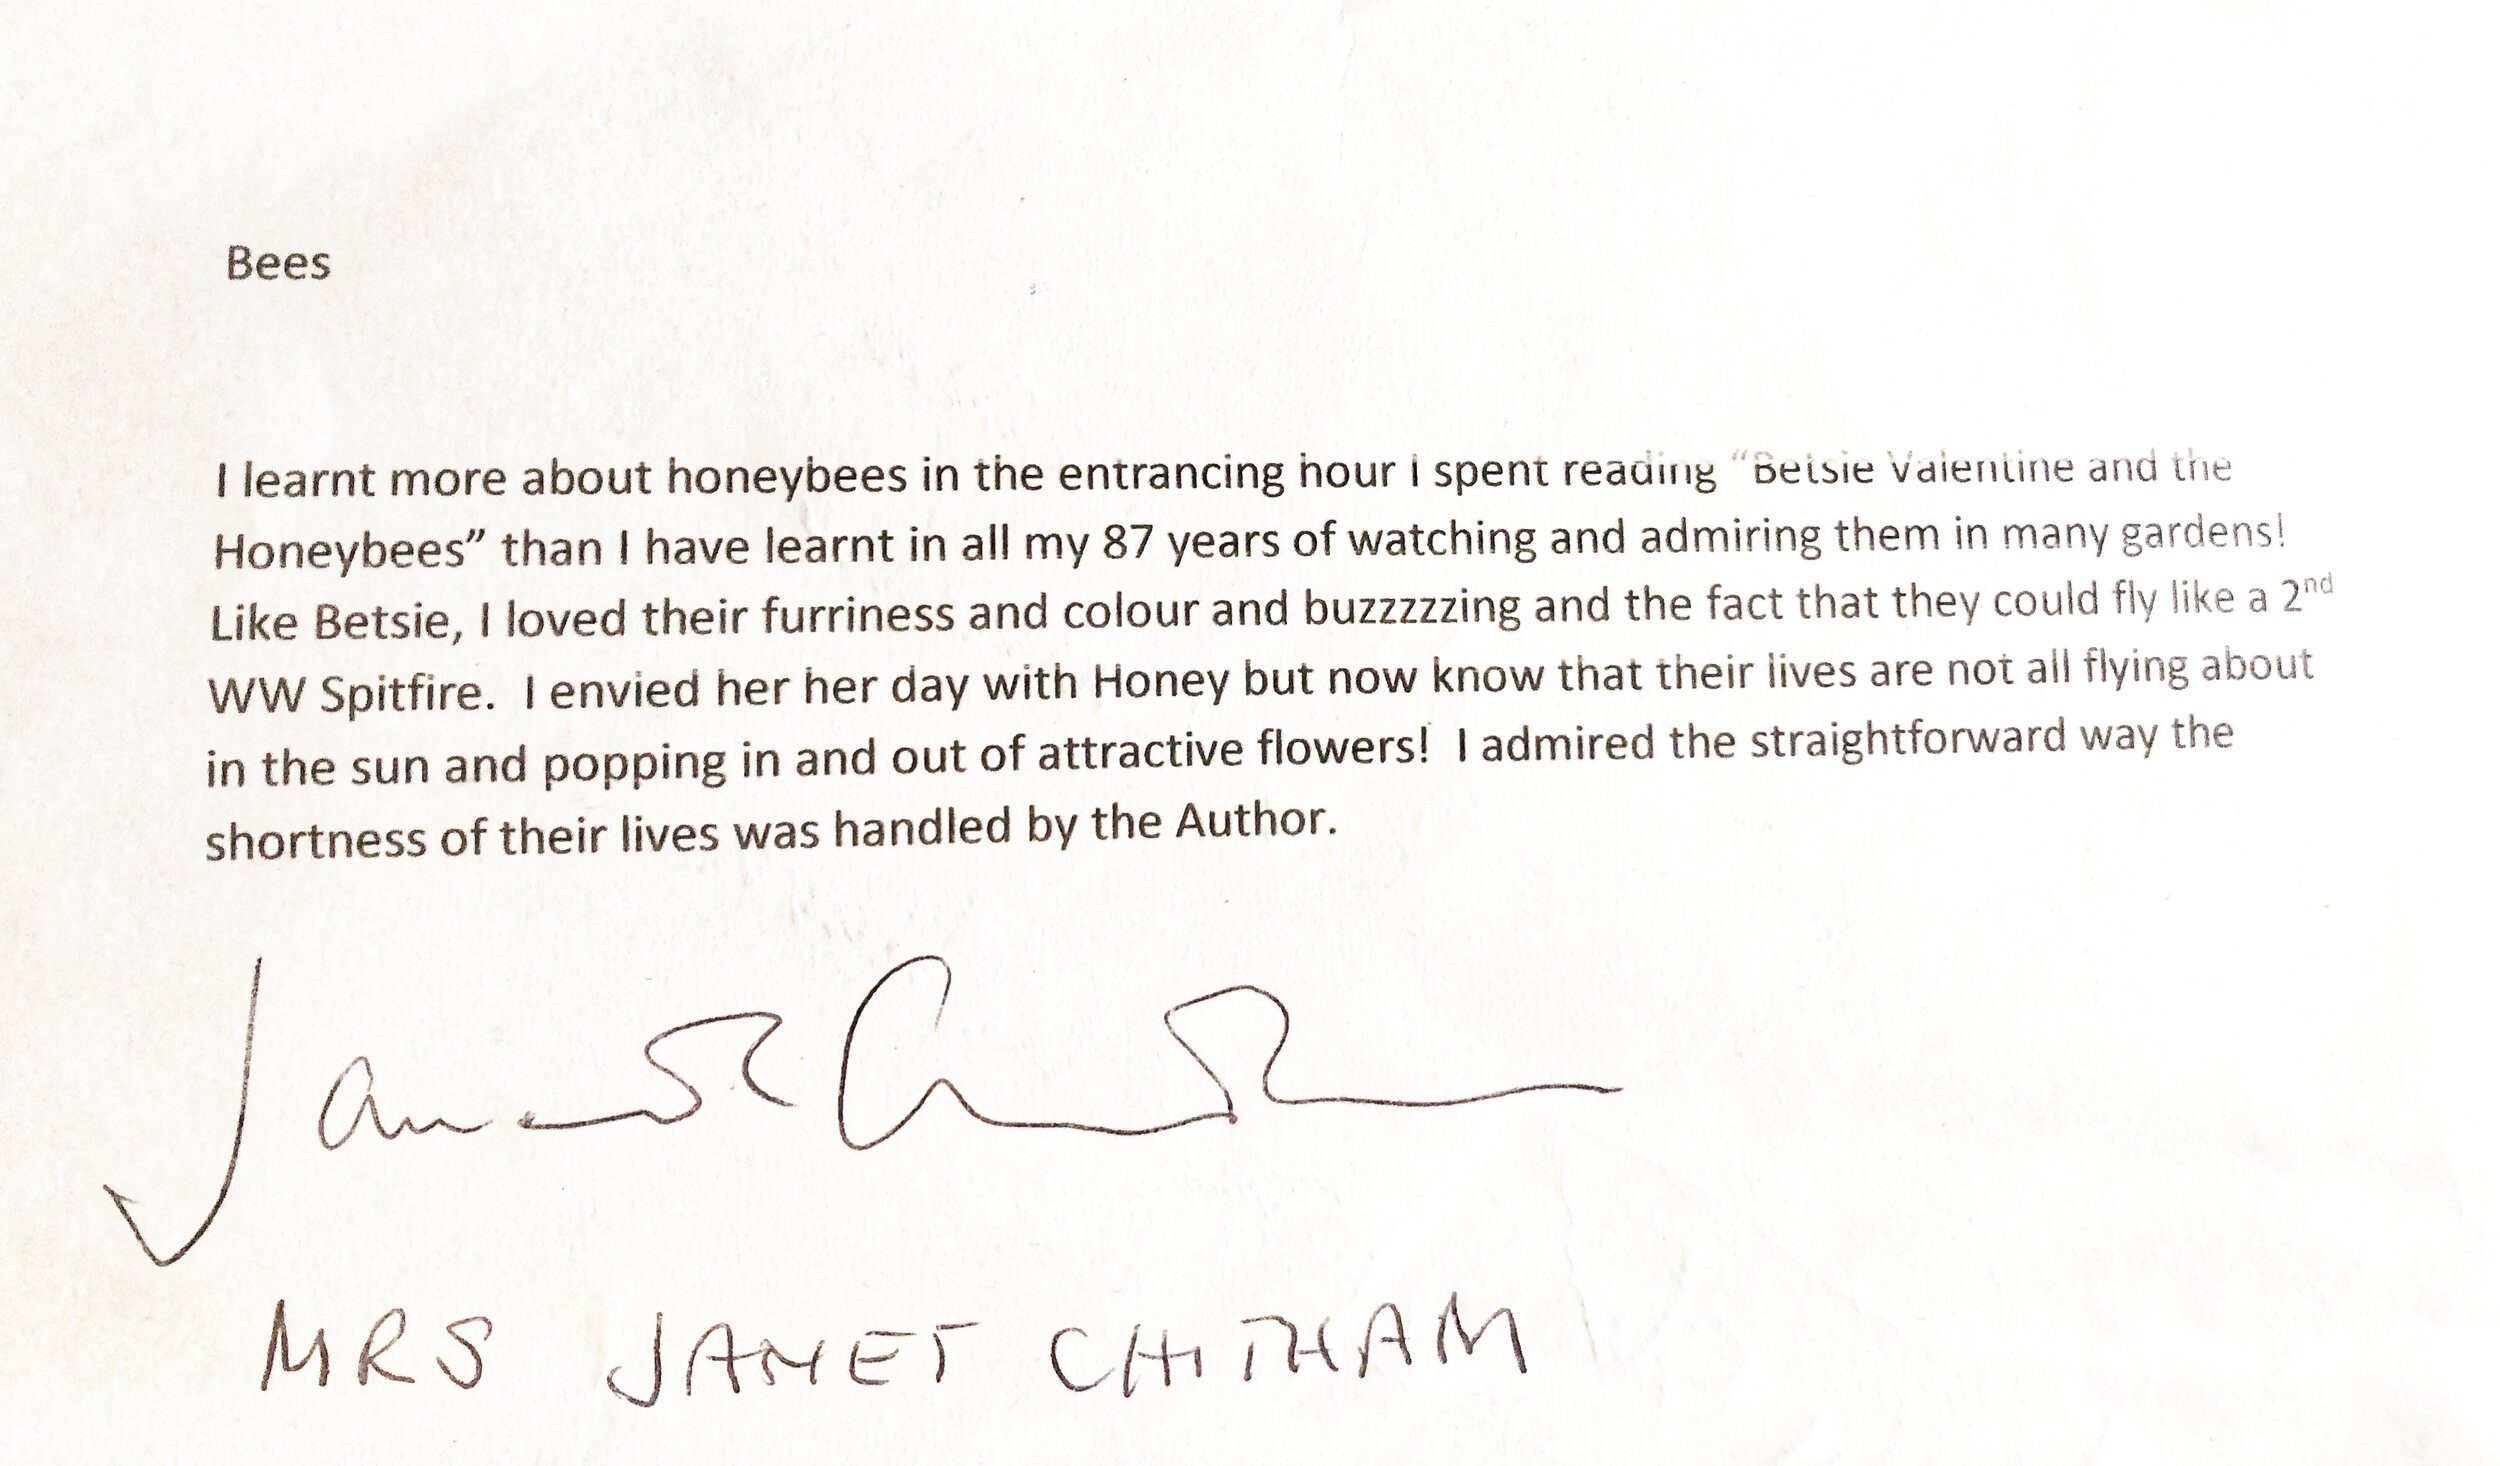 Bees
I learnt more about honeybees in the entrancing hour I spent reading “Betsie Valentine and the
Honeybees” than I have learnt in all my 87 years of watching and admiring them in many gardens!
Like Betsie, I loved their furriness and colour and buzzzzzing and the fact that they could fly like a 2nd
WW Spitfire.  I envied her her day with Honey but now know that their lives are not all flying about
in the sun and popping in and out of attractive flowers!  I admired the straightforward way the
shortness of their lives was handled by the Author.
Janet Chitham
MRS JANET CHITHAM